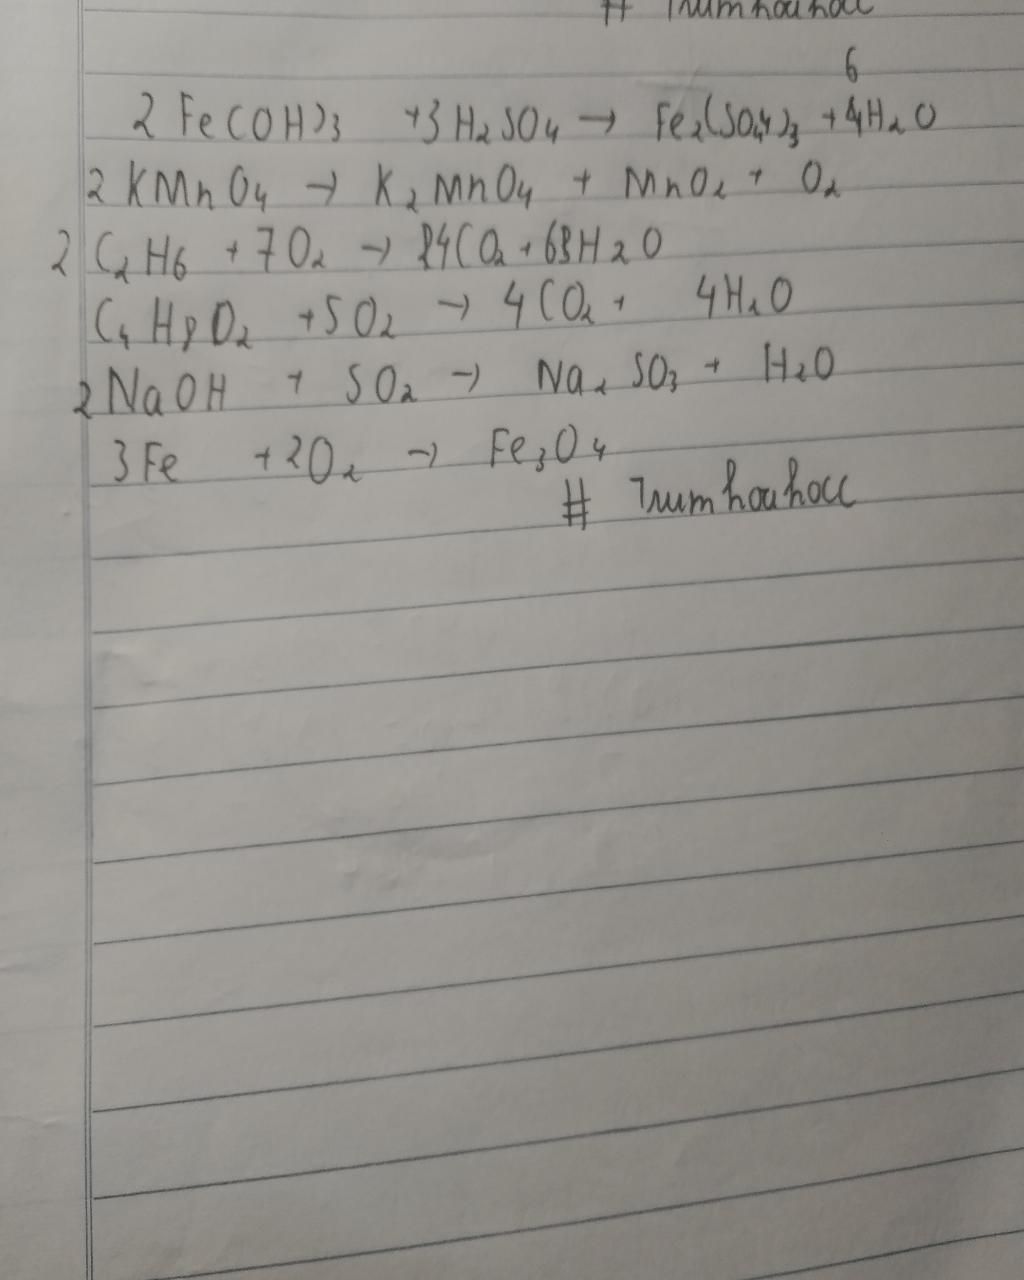 # Trumhoahoc
6
2 Fe(OH)3 +3 H2SO4 → Fe2(SO4)3 + H2O
2 KMnO4 → K2MnO4 + MnO2 + O2
2 C2H6 + 7O2 → 4CO2 + 6H2O
C4H8O2 + 5O2 → 4CO2 + 4H2O
2 NaOH + SO2 → Na2SO3 + H2O
3Fe + 2O2 → Fe3O4
# Trumhoahoc